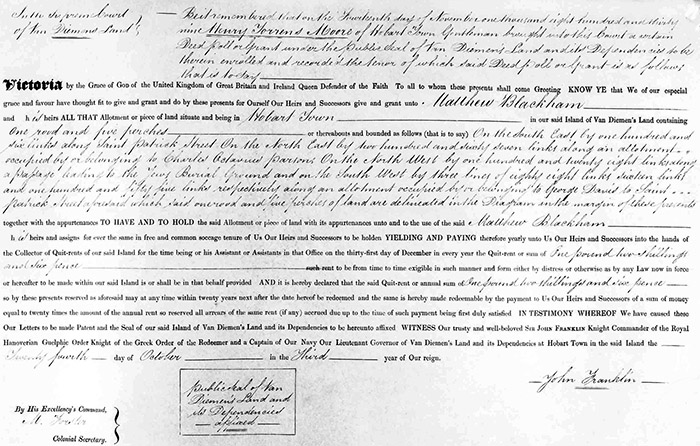 In the Supreme Court
of Van Diemens Land
Be it remembered that on the Fourteenth day of November one thousand eight hundred and thirty
nine Henry Torrens Moore of Hobart Town Gentleman brought into this Court a certain
Deed poll or Grant under the Public Seal of Van Diemen's Land and its Dependencies to be
therein enrolled and recorded the tenor of which said Deed poll or Grant is as follows
that is to say
Victoria by the Grace of God of the United Kingdom of Great Britain and Ireland Queen Defender of the Faith To all to whom these presents shall come Greeting KNOW YE that We of our especial
grace and favour have thought fit to give and grant and do by these presents for Ourself Our Heirs and Successors give and grant unto Matthew Blackham
and his heirs ALL THAT Allotment or piece of land situate and being in Hobart Town in our said Island of Van Diemen's Land containing
One rood and five perches or thereabouts and bounded as follows (that is to say) On the South East by one hundred and
six links along Saint Patrick Street On the North East by two hundred and sixty seven links along an allotment
occupied by or belonging to Charles Octavius Parsons, On the North West by one hundred and twenty eight links along
a passage leading to the Jews Burial Ground and on the South West by three lines of eighty eight links sixteen links
and one hundred and fifty five links respectively along an allotment occupied by or belonging to George Davis to Saint
Patrick Street aforesaid which said one rood and five perches of land are delineated in the Diagram in the margin of these presents
together with the appurtenances TO HAVE AND TO HOLD the said Allotment or piece of land with its appurtenances unto and to the use of the said Matthew Blackham
his heirs and assigns for ever the same in free and common soccage tenure of Us Our Heirs and Successors to be holden YIELDING AND PAYING therefore yearly unto Us Our Heirs and Successors into the hands of
the Collector of Quit-rents of our said Island for the time being or his Assistant or Assistants in that Office on the thirty-first day of December in every year the Quit-rent or sum of One pound two shillings
and Six pence such rent to be from time to time exigible in such manner and form either by distress or otherwise as by any Law now in force
or hereafter to be made within our said Island is or shall be in that behalf provided AND it is hereby declared that the said Quit-rent or annual sum of One pound two shillings and Six pence
so by these presents reserved as aforesaid may at any time within twenty years next after the date hereof be redeemed and the same is hereby made redeemable by the payment to Us Our Heirs and Successors of a sum of money
equal to twenty times the amount of the annual rent so reserved all arrears of the same rent (if any) accrued due up to the time of such payment being first duly satisfied IN TESTIMONY WHEREOF We have caused these
Our Letters to be made Patent and the Seal of our said Island of Van Diemen's Land and its Dependencies to be hereunto affixed WITNESS Our trusty and well-beloved Sir JOHN FRANKLIN Knight Commander of the Royal
Hanoverian Guelphic Order Knight of the Greek Order of the Redeemer and a Captain of Our Navy Our Lieutenant Governor of Van Diemen's Land and its Dependencies at Hobart Town in the said Island the
Twenty fourth day of October in the Third year of Our reign.
John Franklin
Public Seal of Van
Diemen's Land and
its Dependencies
affixed
By His Excellency's Command,
M. Forster
Colonial Secretary.